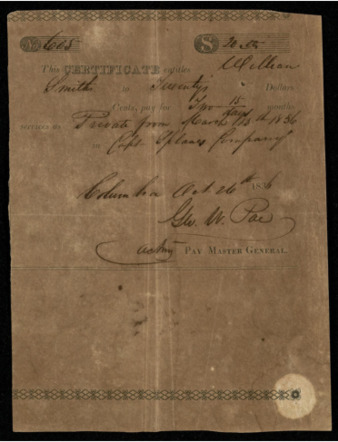 No 6005 $ 20.00
This CERTIFICATE entitles William
Smith to Twenty Dollars
Cents, pay for Two 15 months
days
services as Private from March 13th 1836
in Capt Company
Columbia Oct 26th 1836
Geo. W. Poe
acting PAY MASTER GENERAL.